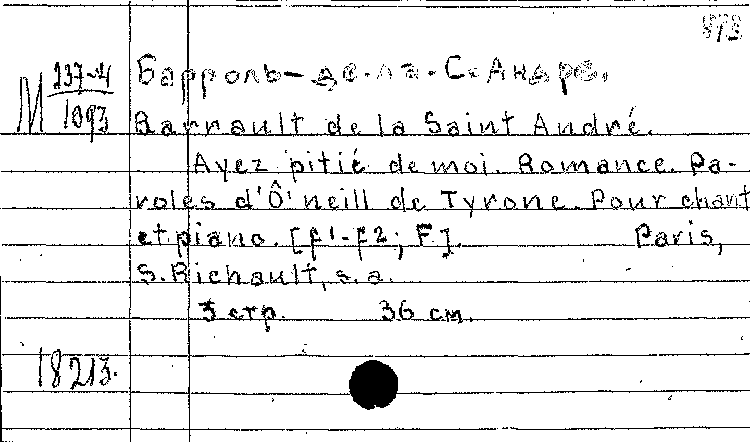 873
М 237-4/1093
Барроль-де-ла-С.-Андре.
Barrault de la Saint André.
Ayez pitié de moi. Romance. Pa-
roles d'Ô'neill de Tyrone. Pour chant
et piano. [f¹-f2; F]. Paris,
S. Richault, s.a.
3 стр. 36 см.
18213.